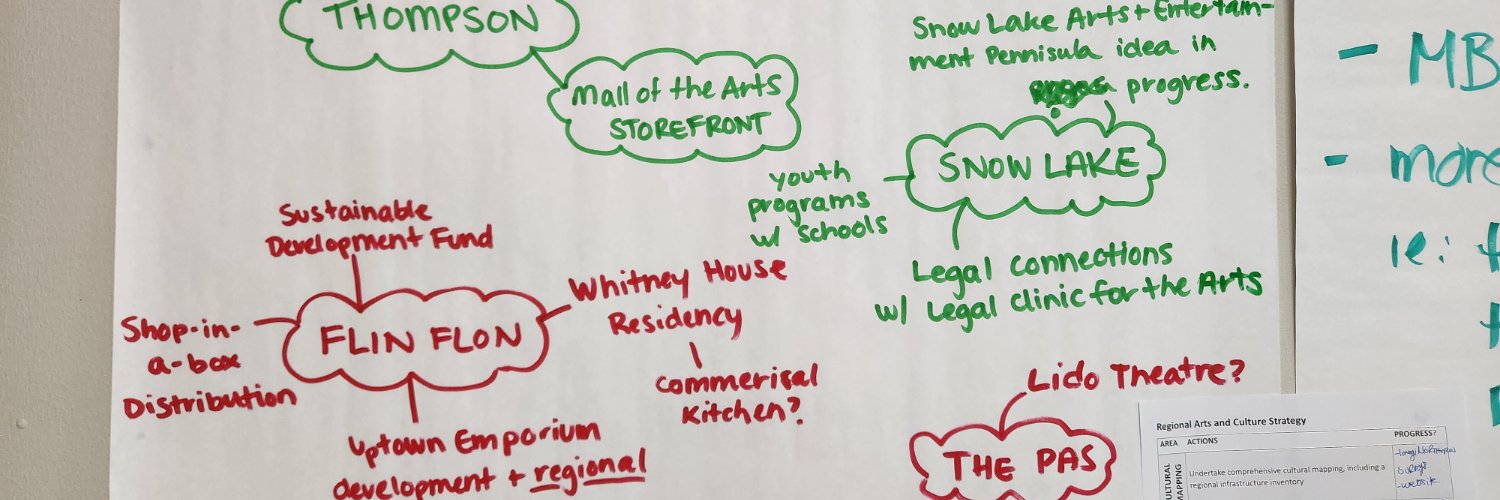 THOMPSON
Mall of the Arts
STOREFRONT
Snow Lake Arts + Entertain-
ment Pennisula idea in
progress.
SNOW LAKE
youth
programs
w/ schools
Legal connections
w/ Legal clinic for the Arts
Sustainable
Development Fund
FLIN FLON
Shop-in-
a-box
Distribution
Whitney House
Residency
Commerical
Kitchen?
Uptown Emporium
development + regional
Lido Theatre?
THE PAS
- MB
- more
ie:
Regional Arts and Culture Strategy
AREA ACTIONS PROGRESS?
Undertake comprehensive cultural mapping, including a
regional infrastructure inventory
MAPPING